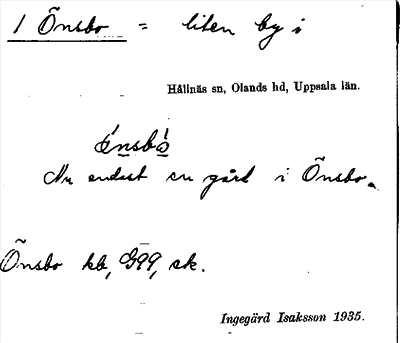 1 Önsbo = liten by i
Hållnäs sn, Olands hd, Uppsala län.
Nu endast en gård i Önsbo.
Önsbo kb, G99, sk.
Ingegärd Isaksson 1935.